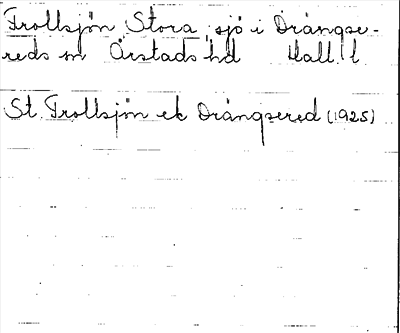 Trollsjön, Stora, sjö i Drängse-
reds sn Årstads hd Hall. l
St. Trollsjön ek Drängsered (1925)